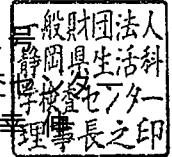 一般財団法人
静岡県生活科
学検査センター
理事長之印
号